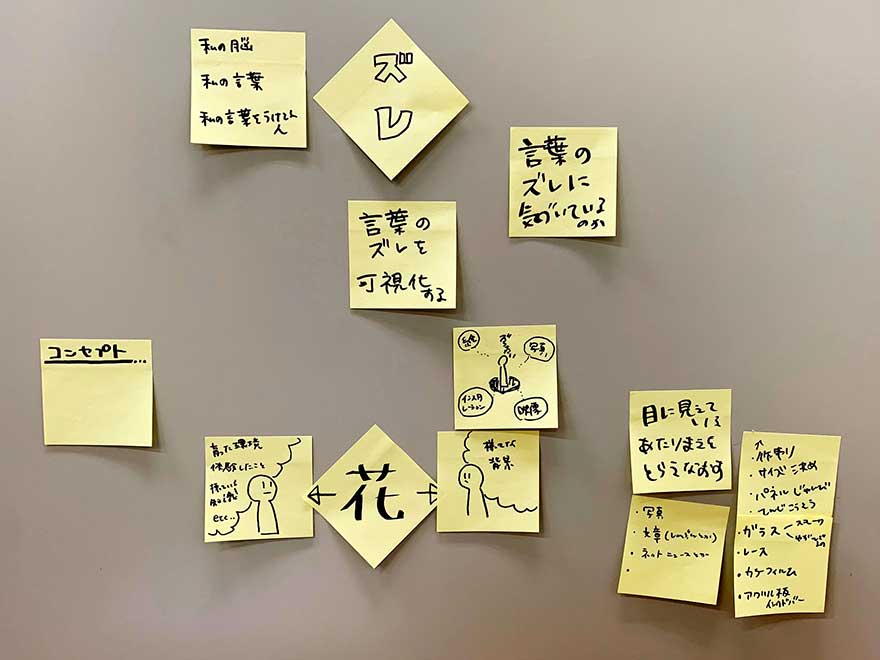 私の脳
私の言葉
私の言葉をうけとる
人
ズレ
言葉の
ズレに
気づいている
のか
言葉の
ズレを
可視化
する
コンセプト...
写真
インスタ
レーション
映像
育った環境
体験したこと
持っている
知識
etc..
花
様々な
背景
目に見えて
いる
あたりまえを
とらえなおす
・写真
・文章(しんぶんとか)
・ネットニュースとか
・
・サイズ決め
・パネル
・ガラス
・レース
・カラーフィルム
・アクリル板